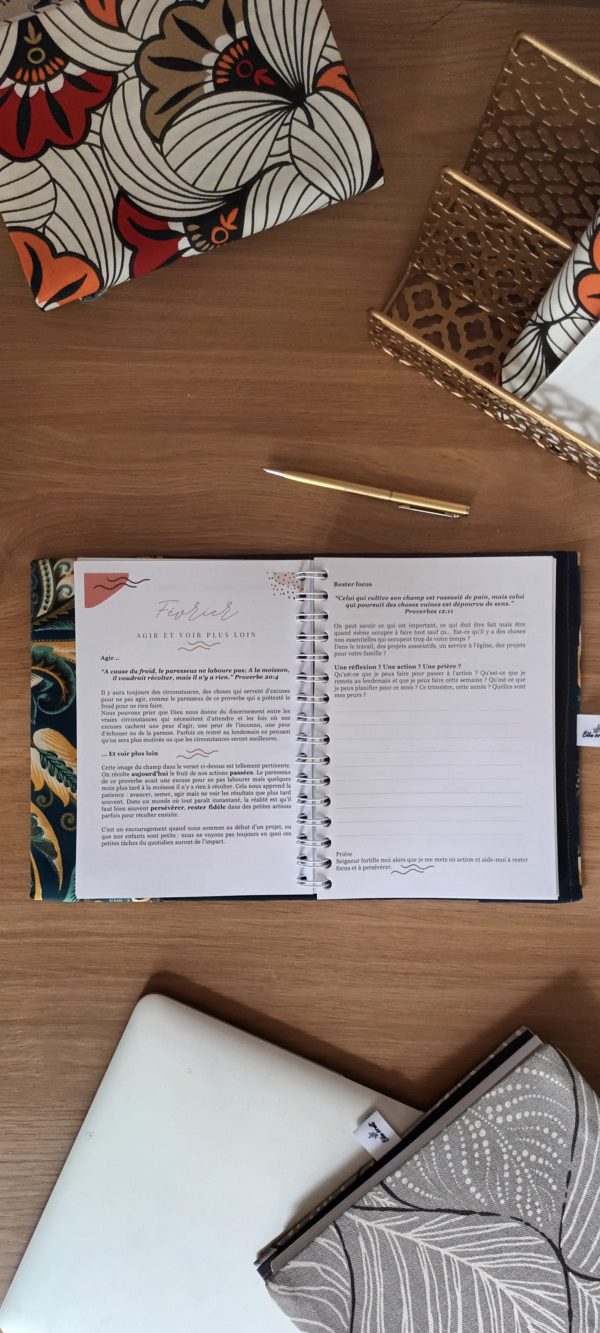 Février
AGIR ET VOIR PLUS LOIN
Agir...
"A cause du froid, le paresseux ne laboure pas; A la moisson,
il voudrait récolter, mais il n'y a rien." Proverbe 20:4
Il y aura toujours des circonstances, des choses qui servent d'excuses
pour ne pas agir, comme le paresseux de ce proverbe qui a prétexté le
froid pour ne rien faire.
Nous pouvons prier que Dieu nous donne du discernement entre les
vraies circonstances qui nécessitent d'attendre et les fois où nos
excuses cachent une peur d'agir, une peur de l'inconnu, une peur
d'échouer ou de la paresse. Parfois on remet au lendemain en pensant
qu'on sera plus motivée ou que les circonstances seront meilleures.
... Et voir plus loin
Cette image du champ dans le verset ci-dessus est tellement pertinente.
On récolte aujourd'hui le fruit de nos actions passées. Le paresseux
de ce proverbe avait une excuse pour ne pas labourer mais quelques
mois plus tard à la moisson il n'y a rien à récolter. Cela nous apprend la
patience : avancer, semer, agir mais ne voir les résultats que plus tard
souvent. Dans un monde où tout paraît instantané, la réalité est qu'il
faut bien souvent persévérer, rester fidèle dans des petites actions
parfois pour récolter ensuite.
C'est un encouragement quand nous sommes au début d'un projet, ou
que nos enfants sont petits : nous ne voyons pas toujours en quoi ces
petites tâches du quotidien auront de l'impact.
Rester focus
"Celui qui cultive son champ est rassasié de pain, mais celui
qui poursuit des choses vaines est dépourvu de sens."
Proverbes 12:11
On peut savoir ce qui est important, ce qui doit être fait mais être
quand même occupée à faire tout sauf ça... Est-ce qu'il y a des choses
non essentielles qui occupent trop de votre temps ?
Dans le travail, des projets associatifs, un service à l'église, des projets
pour votre famille ?
Une réflexion ? Une action ? Une prière ?
Qu'est-ce que je peux faire pour passer à l'action ? Qu'est-ce que je
remets au lendemain et que je peux faire cette semaine ? Qu'est-ce que
je peux planifier pour ce mois ? Ce trimestre, cette année ? Quelles sont
mes peurs ?
Prière
Seigneur fortifie moi alors que je me mets en action et aide-moi à rester
focus et à persévérer.